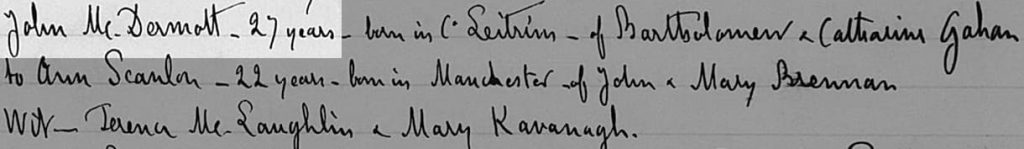 John Mc.Dermott - 27 years - born in Co Leitrim - of Bartholomew & Catharine Gahan
to Ann Scanlon - 22 years - born in Manchester - of John & Mary Brennan
Wit - Terence Mc.Laughlin & Mary Kavanagh.